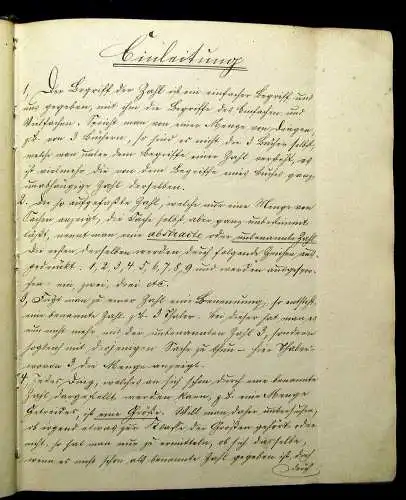 Einleitung
1, Der Begriff der Zahl ist ein einfacher Begriff und
uns gegeben, mit ihm die Begriffe des Einfachen und
Vielfachen. Spricht man von einer Menge von Dingen,
z.B. von 3 Büchern, so sind es nicht die 3 Bücher selbst,
welche man unter dem Begriffe einer Zahl versteht, es
ist vielmehr die von dem Begriffe eines Buches ganz
unabhängige Zahl derselben.
2. Die so aufgefaßte Zahl, welche nur eine Menge von
Sachen anzeigt, die Sache selbst aber ganz unbestimmt
läßt, nennt man eine abstracte oder unbenannte Zahl
die ersten derselben werden durch folgende Zeichen aus-
gedrückt. 1, 2, 3, 4, 5, 6, 7, 8, 9 und werden ausgespro-
chen ein, zwei, drei etc.
3, Fügt man zu einer Zahl eine Benennung, so entsteht
eine benannte Zahl. z.B. 3 Thaler. Bei dieser hat man es
nun nicht mehr mit der unbenannten Zahl 3, sondern
zugleich mit derjenigen Sache zu thun – hier Thaler –
wovon 3 die Menge anzeigt.
4, Jedes Ding, welches an sich schon durch eine benannte
Zahl dargestellt werden kann, z.B. eine Menge
Getreides, ist eine Größe. Will man daher untersuchen,
ob irgend etwas zur Klasse der Größen gehört oder
nicht, so hat man nur zu ermitteln, ob sich dasselbe,
wenn es nicht schon als benannte Zahl gegeben ist, doch
durch